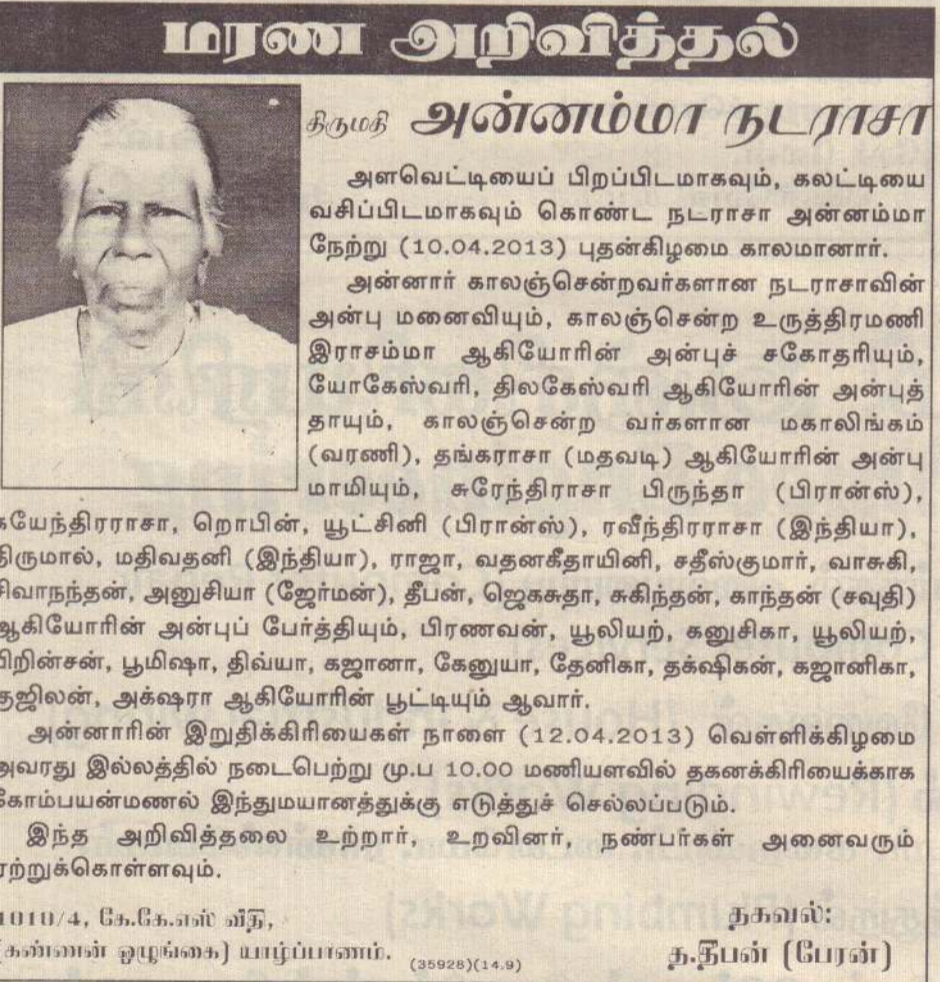 மரண அறிவித்தல்
திருமதி அன்னம்மா நடராசா
அளவெட்டியைப் பிறப்பிடமாகவும், கலட்டியை
வசிப்பிடமாகவும் கொண்ட நடராசா அன்னம்மா
நேற்று (10.04.2013) புதன்கிழமை காலமானார்.
அன்னார் காலஞ்சென்றவர்களான நடராசாவின்
அன்பு மனைவியும், காலஞ்சென்ற உருத்திரமணி
இராசம்மா ஆகியோரின் அன்புச் சகோதரியும்,
யோகேஸ்வரி, திலகேஸ்வரி ஆகியோரின் அன்புத்
தாயும், காலஞ்சென்ற வர்களான மகாலிங்கம்
(வரணி), தங்கராசா (மதவடி) ஆகியோரின் அன்பு
மாமியும், சுரேந்திராசா பிருந்தா (பிரான்ஸ்),
கயேந்திரராசா, றொபின், யூட்சினி (பிரான்ஸ்), ரவீந்திரராசா (இந்தியா),
திருமால், மதிவதனி (இந்தியா), ராஜா, வதனகீதாயினி, சதீஸ்குமார், வாசுகி,
சிவாநந்தன், அனுசியா (ஜேர்மன்), தீபன், ஜெகசுதா, சுகிந்தன், காந்தன் (சவுதி)
ஆகியோரின் அன்புப் பேர்த்தியும், பிரணவன், யூலியற், கனுசிகா, யூலியற்,
பிறின்சன், பூமிஷா, திவ்யா, கஜானா, கேனுயா, தேனிகா, தக்ஷிகன், கஜானிகா,
குஜிலன், அக்ஷரா ஆகியோரின் பூட்டியும் ஆவார்.
அன்னாரின் இறுதிக்கிரியைகள் நாளை (12.04.2013) வெள்ளிக்கிழமை
அவரது இல்லத்தில் நடைபெற்று மு.ப 10.00 மணியளவில் தகனக்கிரியைக்காக
கோம்பயன்மணல் இந்துமயானத்துக்கு எடுத்துச் செல்லப்படும்.
இந்த அறிவித்தலை உற்றார், உறவினர், நண்பர்கள் அனைவரும்
ஏற்றுக்கொள்ளவும்.
1010/4, கே.கே.எஸ் வீதி,
(கண்ணன் ஒழுங்கை) யாழ்ப்பாணம்.
(35928)(14.9)
தகவல்:
த.தீபன் (பேரன்)